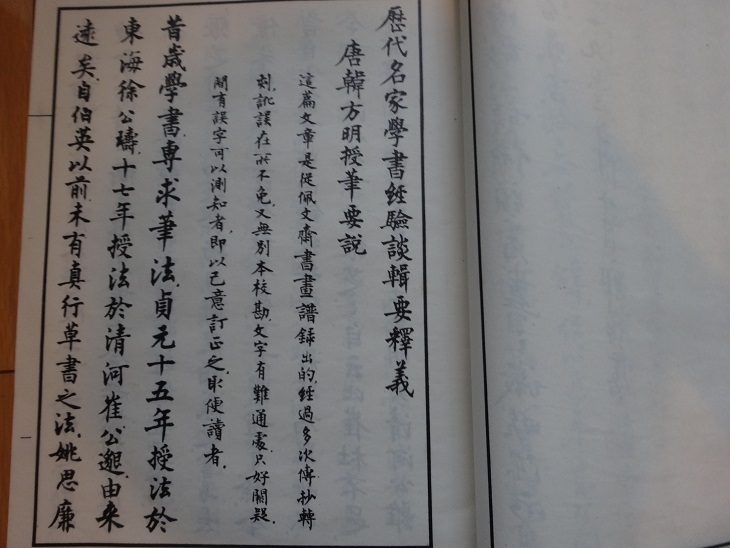 歷代名家學書經驗談輯要釋義
唐韓方明授筆要說
這篇文章是從佩文齋書畫譜錄出的.經過多次傳抄轉
刻.訛誤在所不免.又無別本校勘.文字有難通處.只好闕疑.
間有誤字可以測知者.即以己意訂正之.取便讀者.
昔歲學書.專求筆法.貞元十五年授法於
東海徐公璹.十七年授法於清河崔公邈.由来
遠矣.自伯英以前.未有真行草書之法.姚思廉